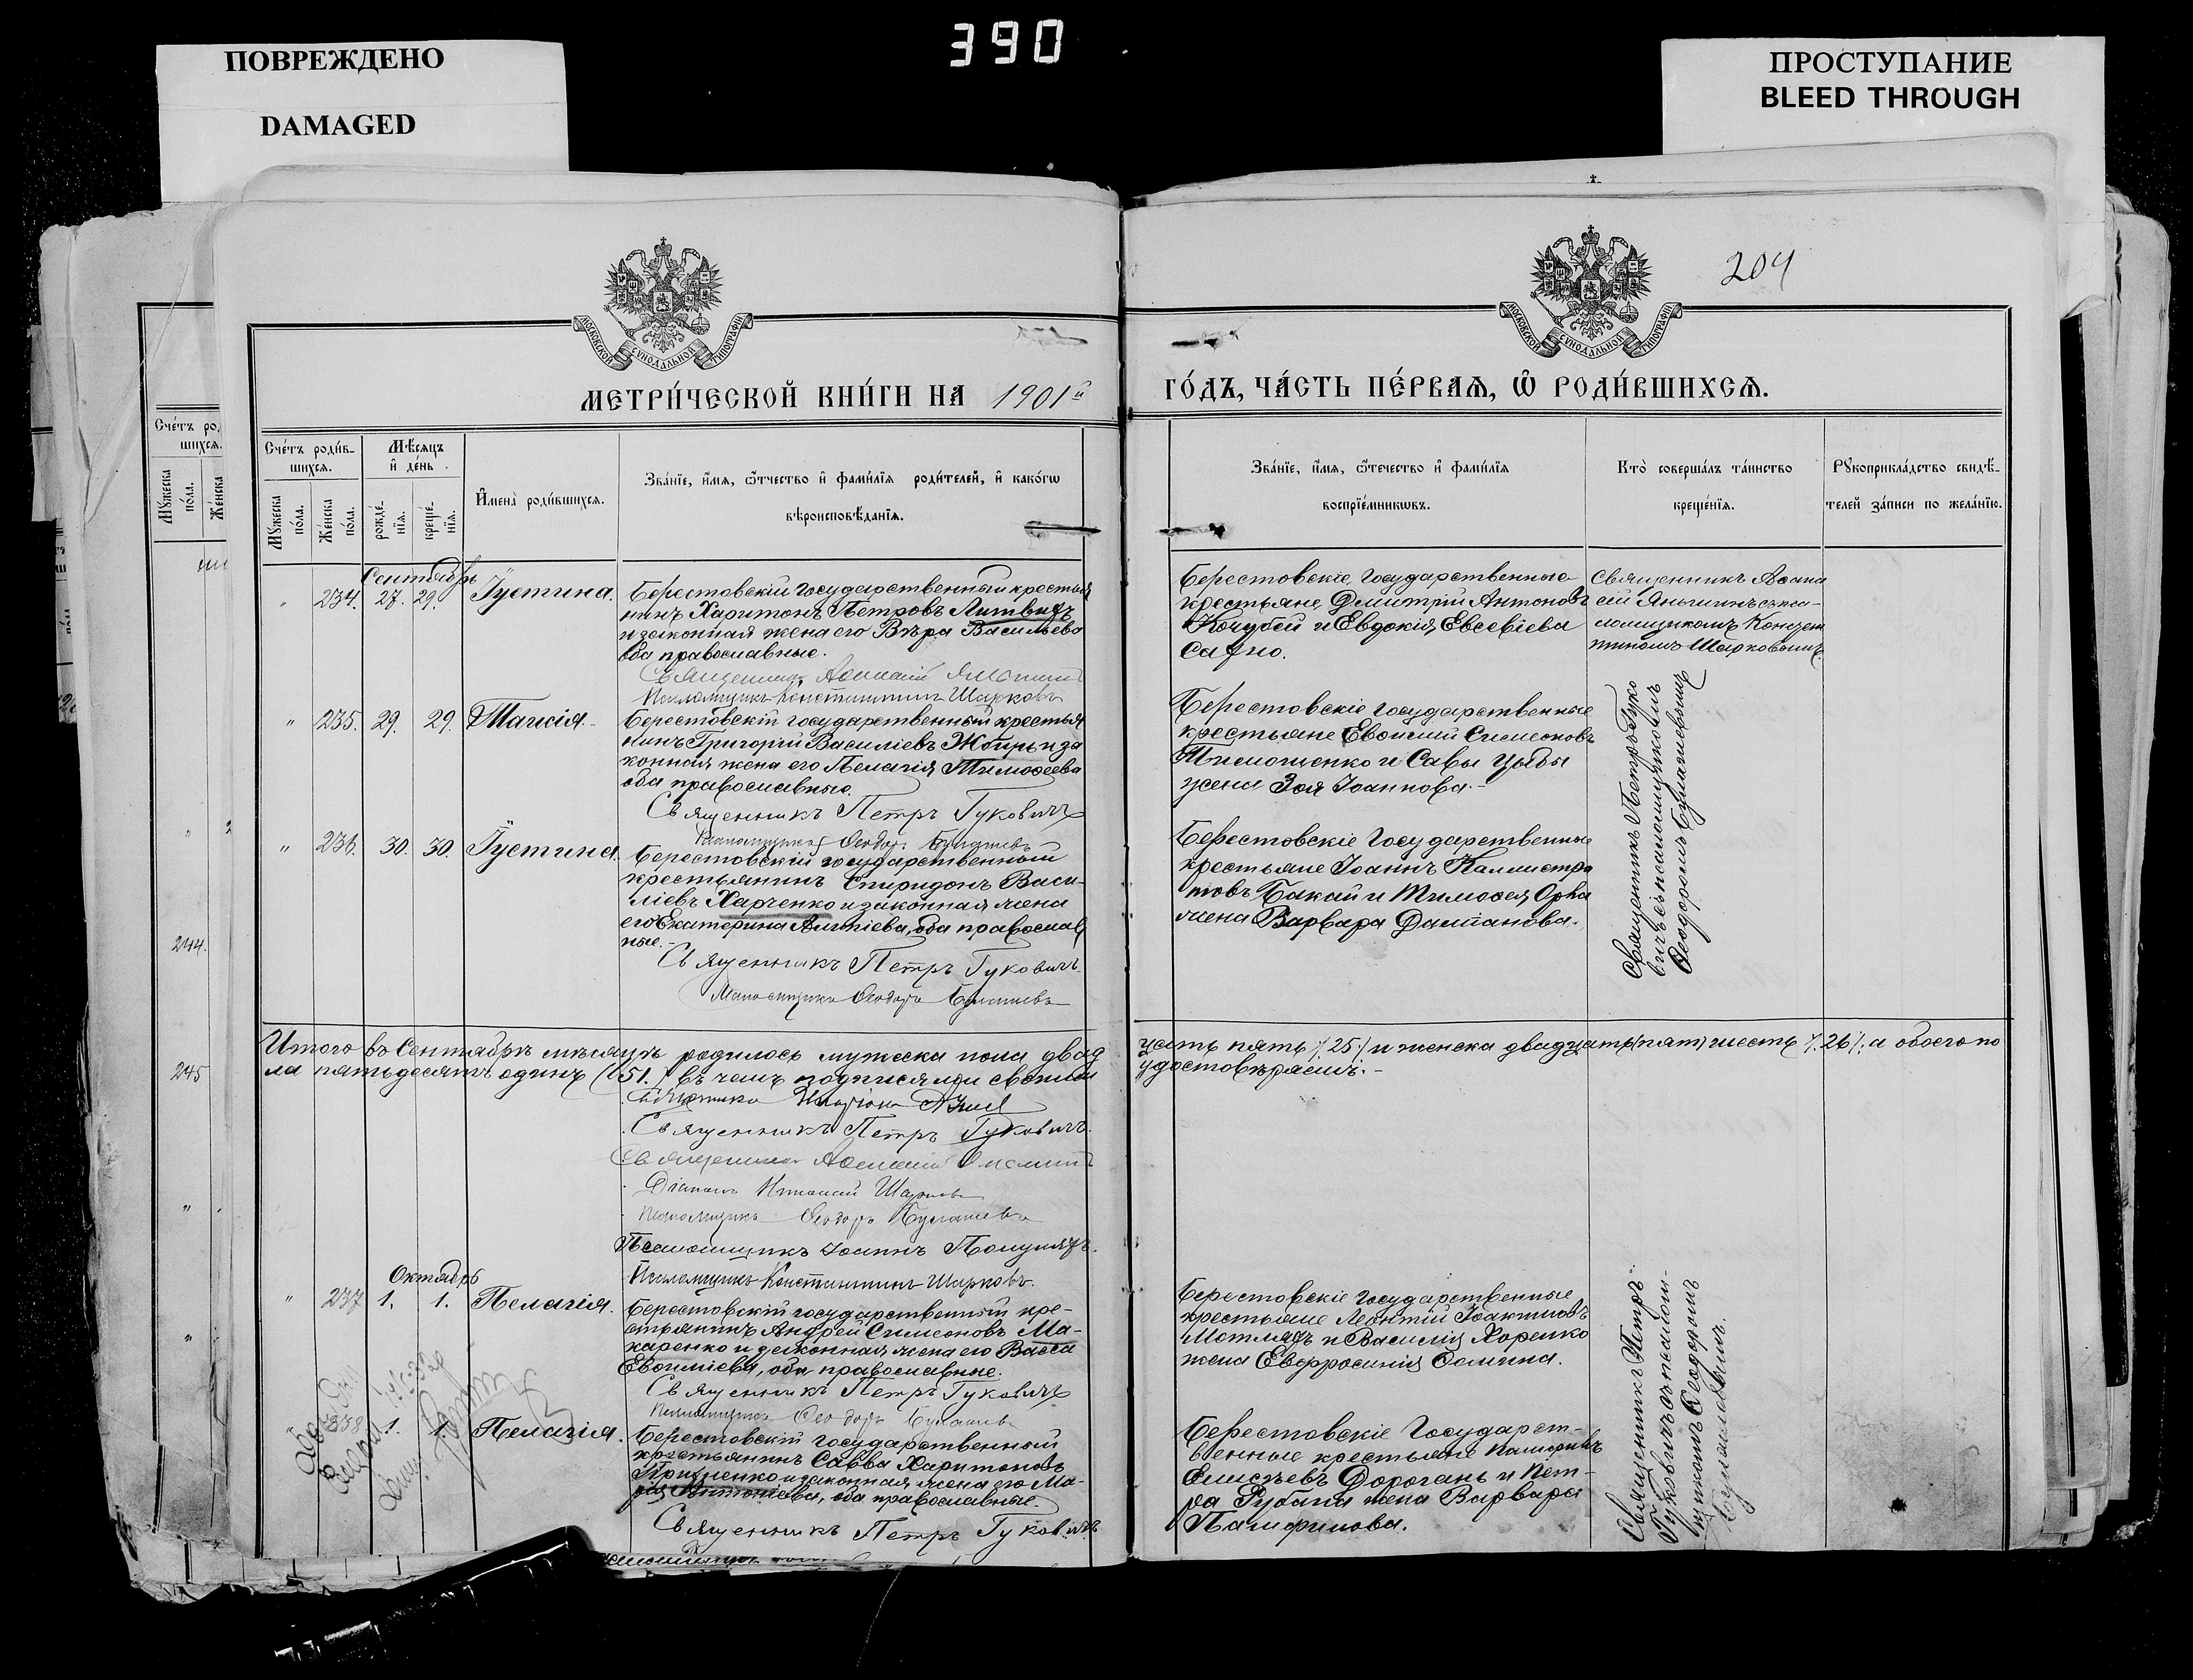 390
ПОВРЕЖДЕНО
DAMAGED
ПРОСТУПАНИЕ
BLEED THROUGH
204
МОСКОВСКОЙ СѴНОДАЛЬНОЙ ТИПОГРАФІИ
МОСКОВСКОЙ СѴНОДАЛЬНОЙ ТИПОГРАФІИ
МЕТРИ́ЧЕСКОЙ КНИ́ГИ НА 1901й
ГО́ДЪ, ЧА́СТЬ ПЕ́РВАѦ, Ѡ҆ РОДИ́ВШИХСѦ.
Сче́тъ род
шихсѧ.
Мꙋ́жеска
по́ла.
Же́нска
244.
245
Сче́тъ роди́в-
шихсѧ.
Мꙋ́жеска
по́ла.
Же́нска
по́ла.
Мѣ́сѧцъ
и҆ де́нь
рожде́-
нїѧ.
креще́-
нїѧ.
И҆мена̀ роди́вшихсѧ.
Зва́нїе, и҆́мѧ, ѻ҆́тчество и҆ фами́лїѧ роди́телей, и҆ како́гѡ
вѣроисповѣ́данїѧ.
Зва́нїе, и҆́мѧ, ѻ҆те́чество и҆ фами́лїѧ
воспрїе́мникѡвъ.
Кто̀ соверша́лъ та́инство
креще́нїѧ.
Рꙋкоприкла́дство свидѣ́-
телей за́писи по жела́нїю.
Сентябрь
" 234. 27. 29. Іустина.
Берестовскій государственный крестья
нинъ Харитонъ Петровъ Литвинъ
и законная жена его Вѣра Васильева
оба православные.
Священникъ Аѳанасій Яньшинъ
Псаломщикъ Константинъ Шарковъ
Берестовскіе государственные
крестьяне Димитрій Антоновъ
Кочубей и Евдокія Евсевіева
Сахно.
Священникъ Аѳана
сій Яньшинъ съ пса-
ломщикомъ Констан
тиномъ Шарковымъ.
" 235. 29. 29. Таисія.
Берестовскій государственный крестья
нинъ Григорій Василіевъ Жбирь и за
конная жена его Пелагія Тимоѳеева
оба православные.
Священникъ Петръ Гуковичъ
Псаломщикъ Ѳеодоръ Булашевъ
Берестовскіе государственные
крестьяне Евѳимій Симеоновъ
Тимошенко и Савы Цыбы
жена Зоя Іоаннова.
" 236. 30. 30. Іустина.
Берестовскій государственный
крестьянинъ Спиридонъ Васи-
ліевъ Харченко и законная жена
его Екатерина Алипіева, оба православ
ные.
Священникъ Петръ Гуковичъ.
Псаломщикъ Ѳеодоръ Булашевъ
Берестовскіе Государственные
крестьяне Іоаннъ Каллистра
товъ Бакай и Тимоѳея Орка
жена Варвара Даміанова.
Священникъ Петръ Гуко
вичъ съ псаломщикомъ
Ѳеодоромъ Булашевымъ
Итого въ Сентябрѣ мѣсяцѣ родилось мужеска пола двад
цать пять /25/ и женска двадцать (пят) шесть /26/, а обоего по
ла пятьдесятъ одинъ (51.) въ чемъ подписями своими
удостовѣряемъ.
Священникъ Петръ Гуковичъ.
Священникъ Аѳанасій Яньшинъ
Діаконъ Николай Шарковъ
Псаломщикъ Ѳеодоръ Булашевъ
Псаломщикъ Іоаннъ
Псаломщикъ Константинъ Шарковъ.
Октябрь
" 237 1. 1. Пелагія.
Берестовскій государственный кре-
стьянинъ Андрей Симеоновъ Ма-
каренко и законная жена его Васса
Евѳиміева, оба православные.
Священникъ Петръ Гуковичъ
Псаломщикъ Ѳеодоръ Булашевъ
Берестовскіе государственные
крестьяне Леонтій Іоакимовъ
Мотлядъ и Василія Хоренко
жена Евфросинія Ѳомина.
" 238 1. 1. Пелагія.
Берестовскій государственный
крестьянинъ Савва Харитоновъ
и законная жена его Ма-
рія Антоніева, оба православные.
Священникъ Петръ Гуковичъ
Берестовскіе Государст-
венные крестьяне Памфилъ
Елисѣевъ Дорогань и Пет-
ра Рубана жена Варвара
Памфилова.
Священникъ Петръ
Гуковичъ съ псалом-
щикомъ Ѳеодоромъ
Булашевымъ.